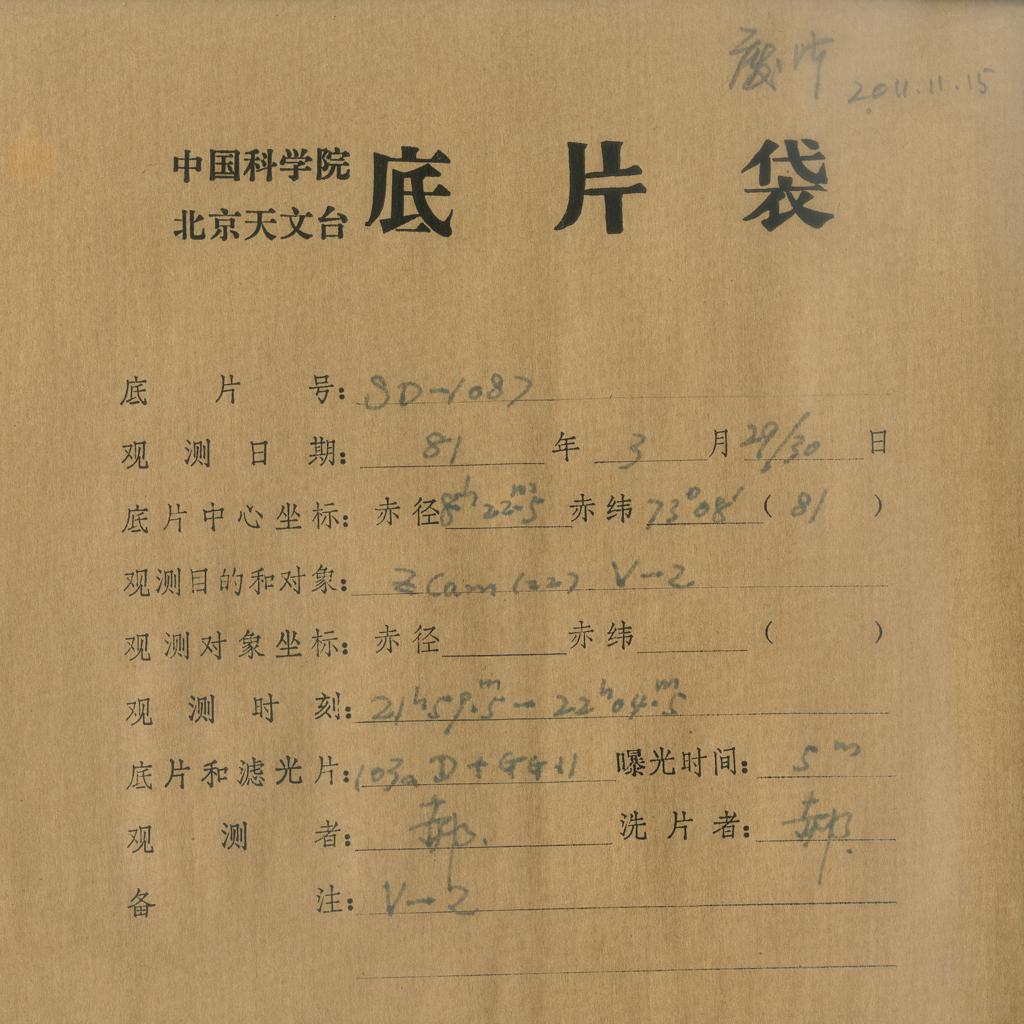 废片 2011.11.15
中国科学院
北京天文台
底片袋
底片号: SD-1087
观测日期: 81年 3月 29/30日
底片中心坐标: 赤径 8h22m.5 赤纬 73°08′ ( 81 )
观测目的和对象: Z Cam (22) V-2
观测对象坐标: 赤径 赤纬 ( )
观测时刻: 21h59m.5 - 22h04m.5
底片和滤光片: 103aD + GG11 曝光时间: 5m
观测者: 郝 洗片者: 郝
备注: V-2